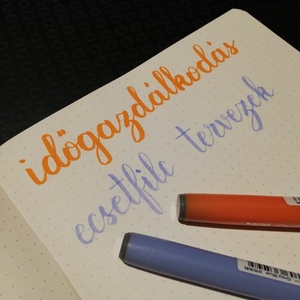 időgazdálkodás
ecsetfilc tervezek